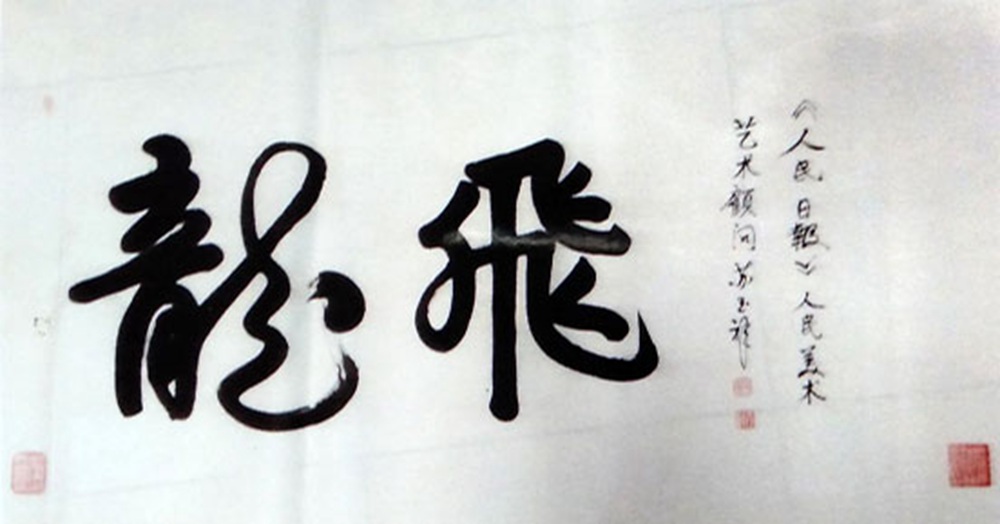 飛龍
《人民日報》人民美术
艺术顾问苏玉祥